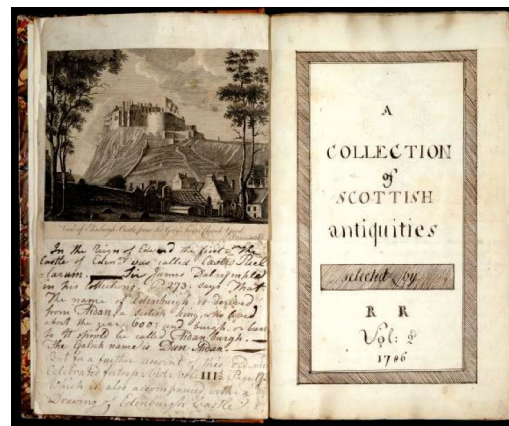 View of Edinburgh Castle from the Grey friers Church Yard
In the Reign of Edward the first The
Castle of Eden was called Castle Puel
larum. In James Dalrymple
in his Collections P 273, says That
The name of Edenburgh, is derived
from Aidan, a scotish king, who lived
about the year 600: and burgh, or
so it should be called Aidan burgh.
The Galick name is Dun Aidan.
But for a further account of this
Celebrated fortress Vide Vol: IIId Page
Which is also accompanied with a
Drawing of Edenburgh Castle
A
COLLECTION
of
SCOTTISH
antiquities
selected by
R R
Vol: 2
1786